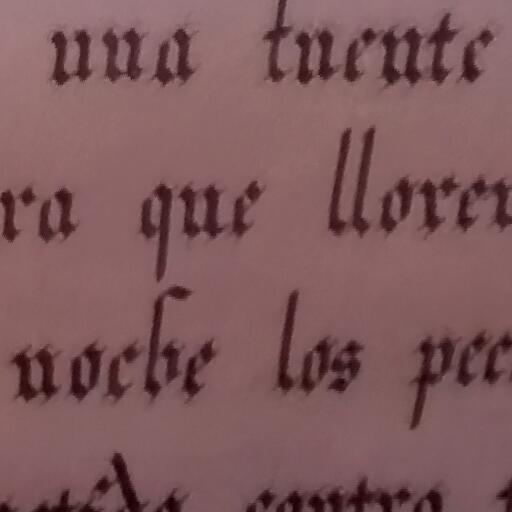 una fuente
ra que lloren
noche los pec
contra